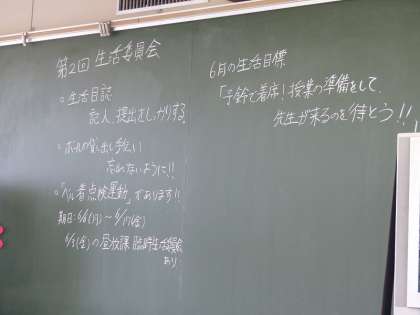 第2回 生活委員会
○ 生活日誌
記入、提出をしっかりする
○ ボールの貸し出し手伝い
忘れないように!!
○「ベル着点検運動」があります!!
期日:6/6(月)〜6/17(金)
6/3(金)の昼放課 臨時生活委員会
あり
6月の生活目標
「予鈴で着席!授業の準備をして、
先生が来るのを待とう!!」